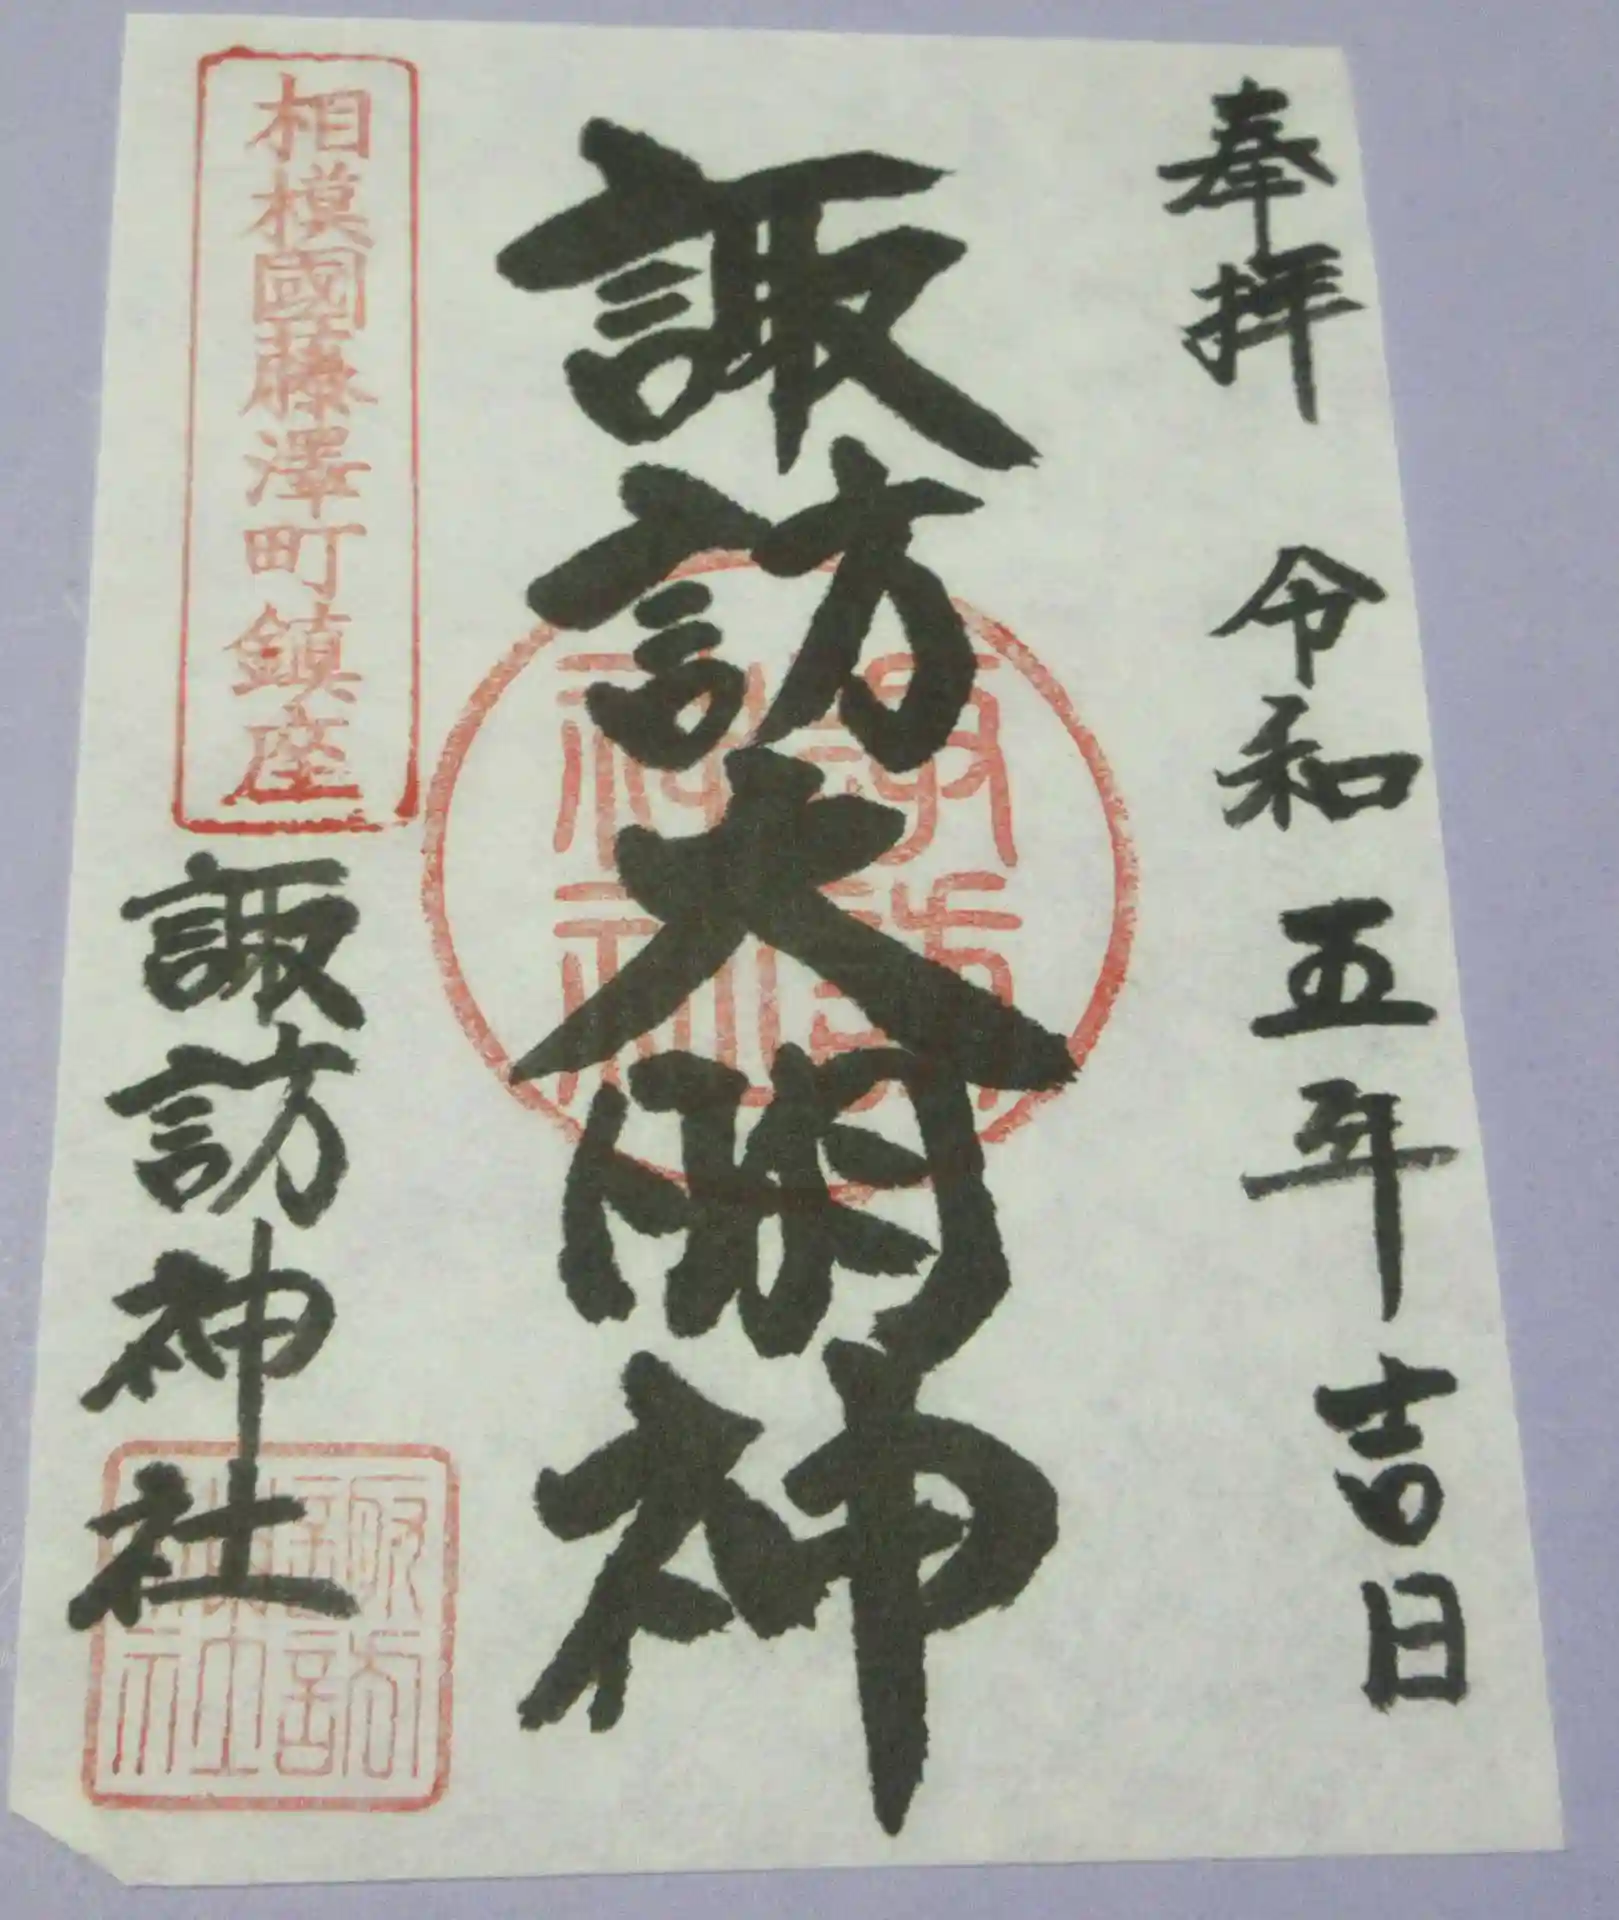 奉拝
令和五年吉日
諏訪大明神
相模國藤澤町鎮座
諏訪神社
諏訪神社
諏訪神社